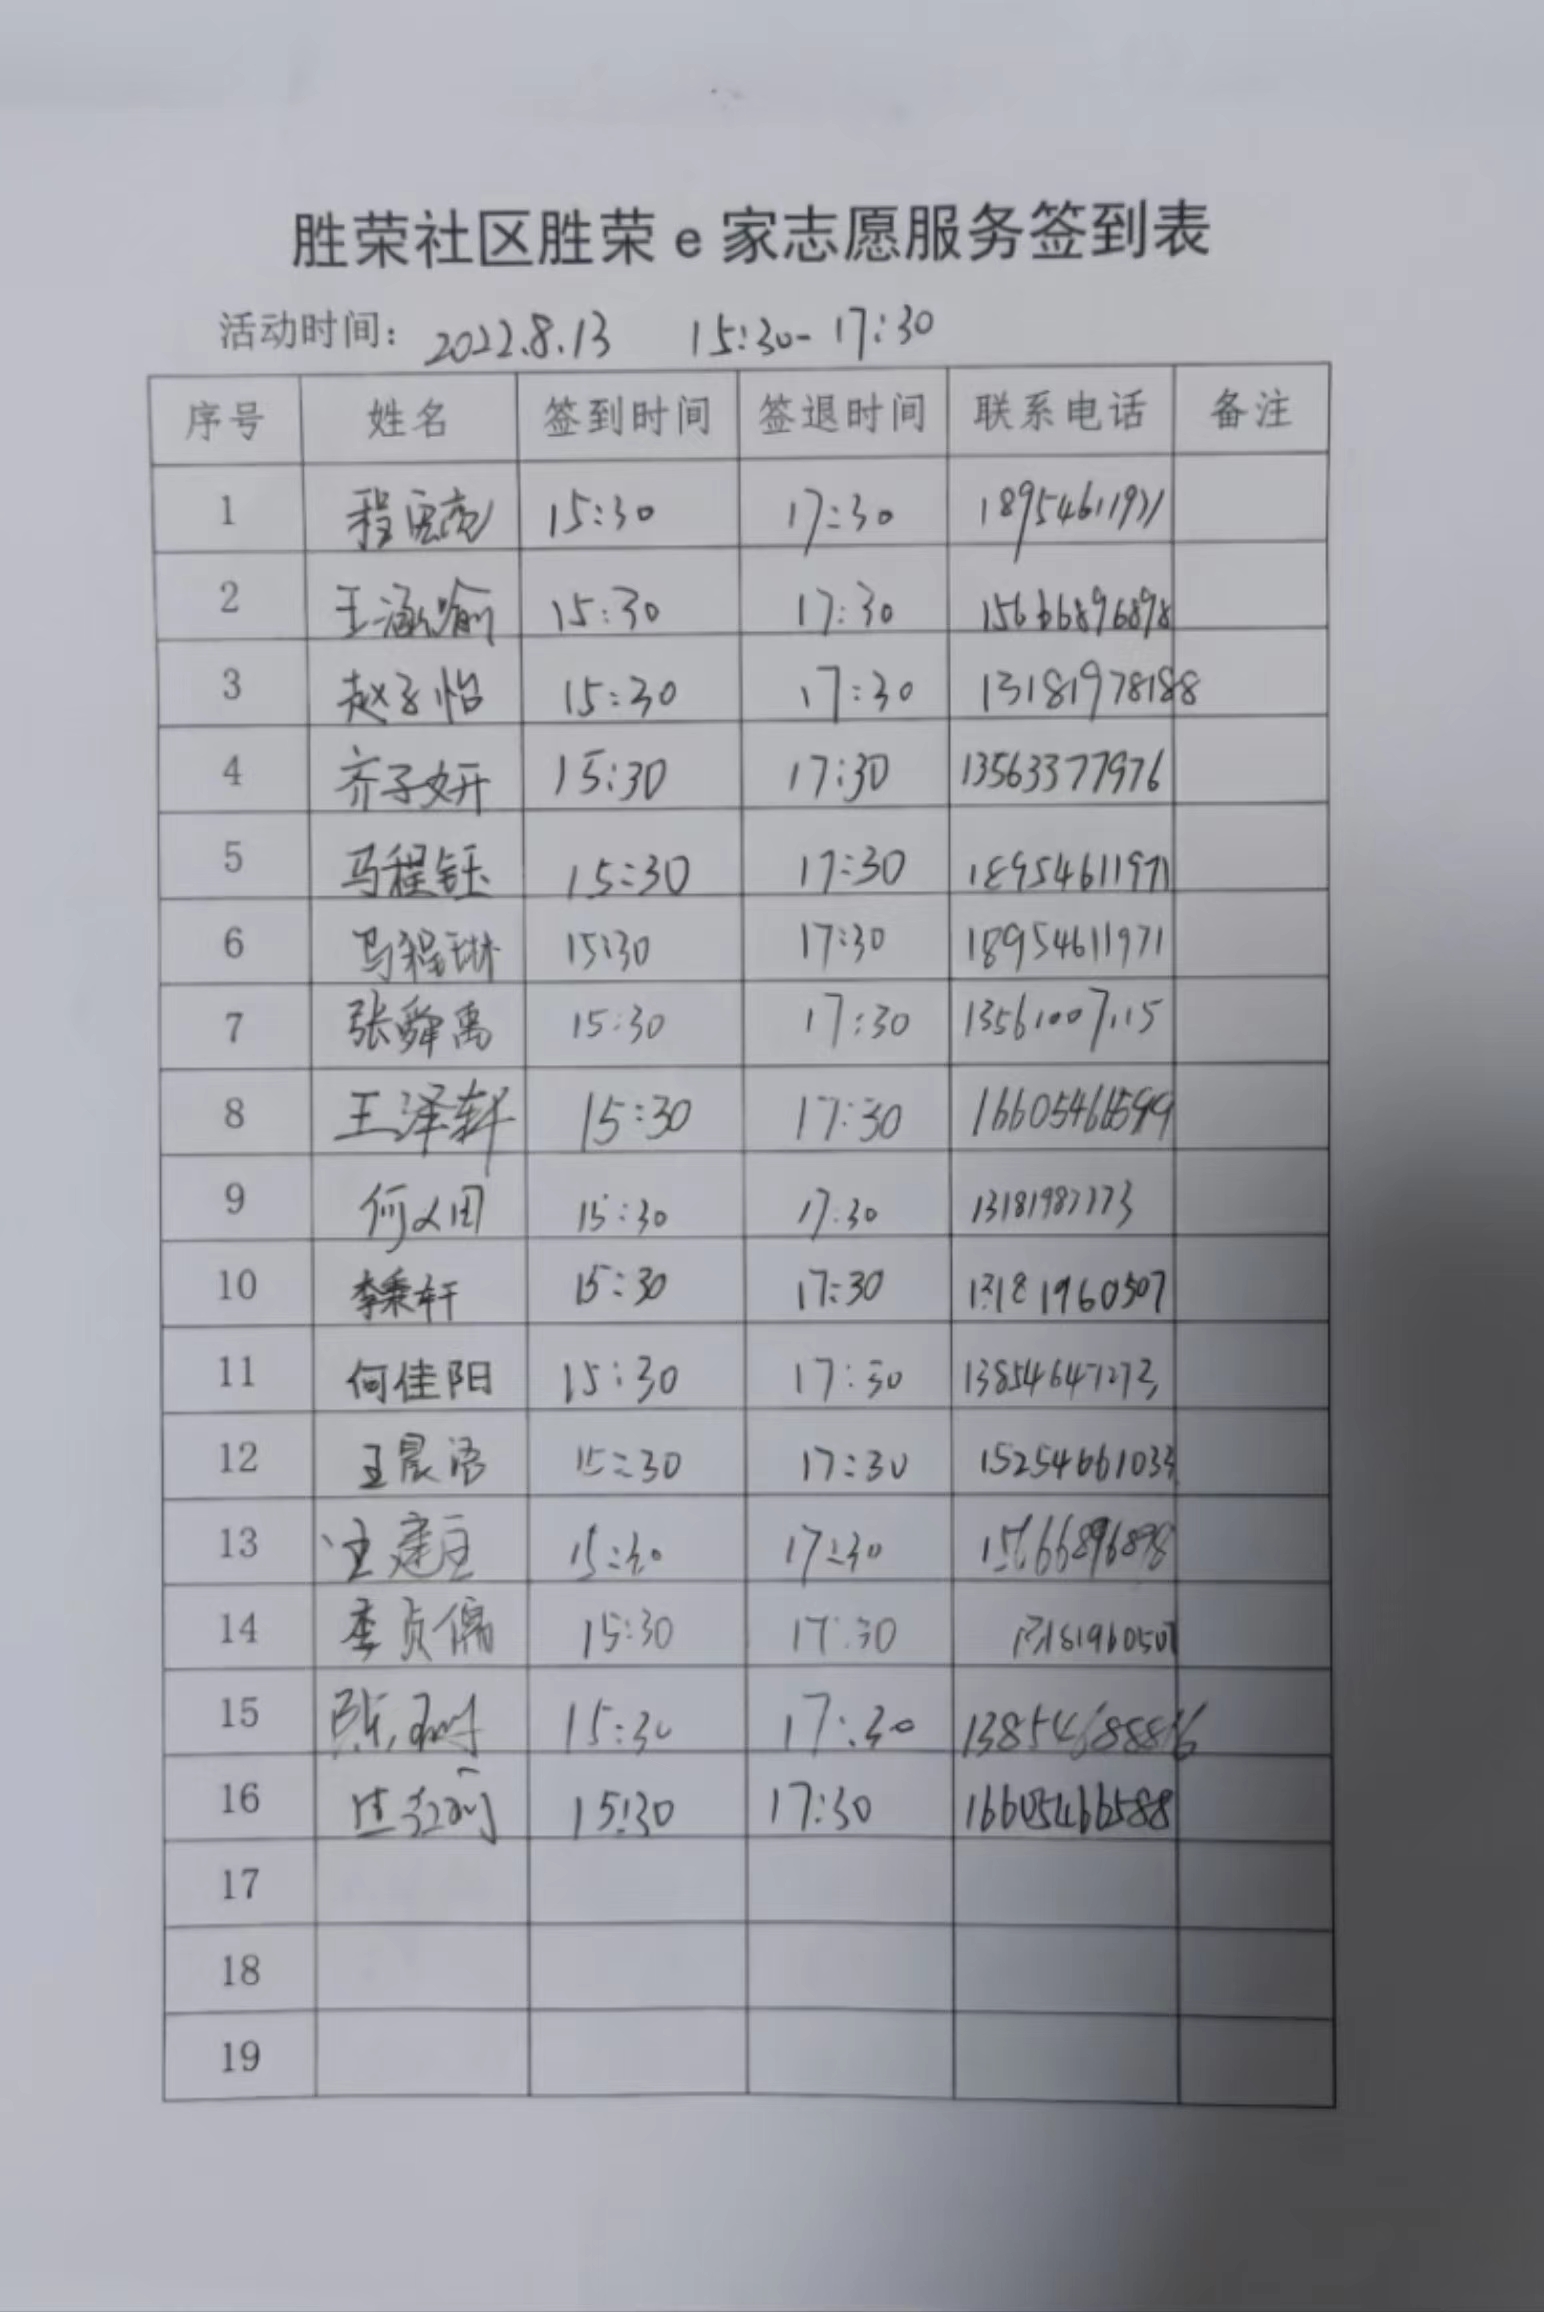 胜荣社区胜荣e家志愿服务签到表
活动时间: 2022.8.13 15:30-17:30
序号 姓名 签到时间 签退时间 联系电话 备注
1 程 15:30 17:30 18954611971
2 王涵喻 15:30 17:30 15666896898
3 赵子怡 15:30 17:30 13181978188
4 齐子妍 15:30 17:30 13563377976
5 马程钰 15:30 17:30 18954611971
6 马程琳 15:30 17:30 18954611971
7 张舜禹 15:30 17:30
8 王泽轩 15:30 17:30
9 何 15:30 17:30
10 李秉轩 15:30 17:30 13181960507
11 何佳阳 15:30 17:30
12 王晨语 15:30 17:30 15254661033
13 15:30 17:30 15666896898
14 李贞儒 15:30 17:30 13181960507
15 陈 15:30 17:30
16 15:30 17:30
17
18
19